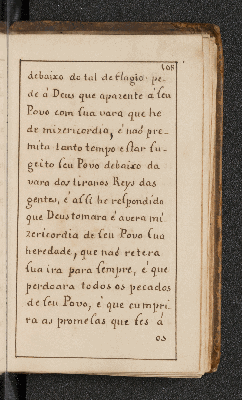 108
debaixo de tal de flagio pe-
de á Deus que aparente á seu
Povo com sua vara que he
de mizericordia, é naõ pre-
mita tanto tempo estar su-
geito seu Povo debaixo da
vara dos tiranos Reys das
gentes, é assi he respondido
que Deus tomara é avera mi
zericordia de seu Povo sua
heredade, que naõ retera
sua ira para sempre, é que
perdoara todos os pecados
de seu Povo, é que cumpri
ra as promesas que les á
os